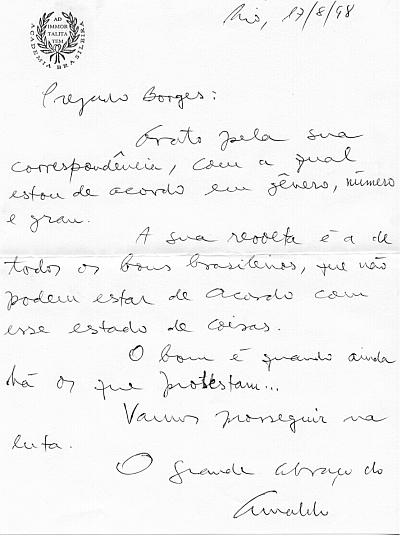 AD
IMMOR
TALITA
TEM
ACADEMIA BRASILEIRA
Rio, 17/8/98
Prezado Borges:
Grato pela sua
correspondência, com a qual
estou de acordo em gênero, número
e grau.
A sua revolta é a de
todos os bons brasileiros, que não
podem estar de acordo com
esse estado de coisas.
O bom é quando ainda
há os que protestam...
Vamos prosseguir na
luta.
O grande abraço do
Arnaldo